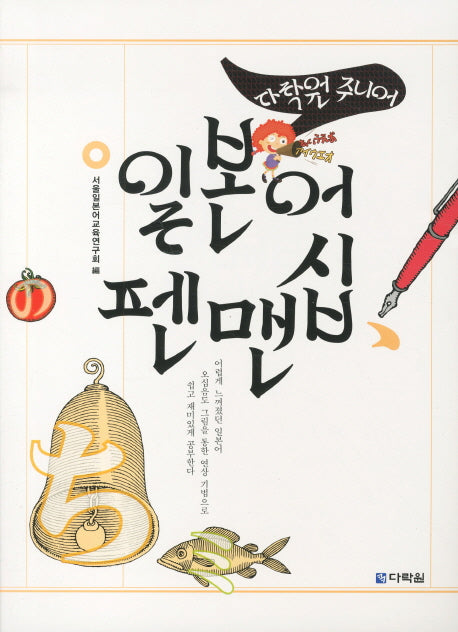 다락원 주니어
아이우에오
일본어
펜맨십
서울일본어교육연구회 編
어렵게 느껴졌던 일본어
오십음도 그림을 통한 연상 기법으로
쉽고 재미있게 공부한다
ち
다락원